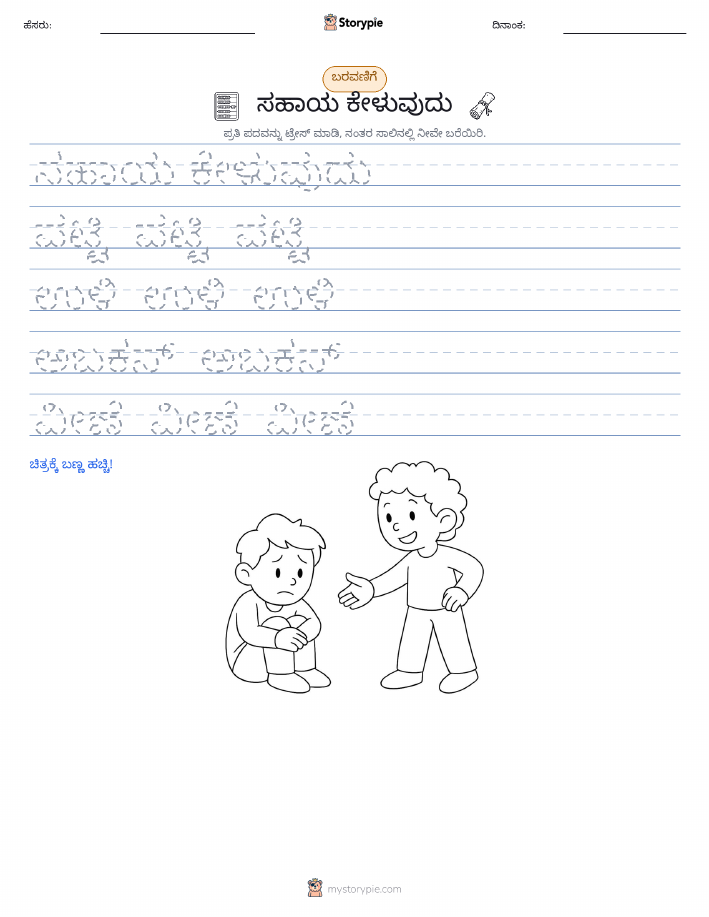 ಹೆಸರು:
Storypie
ದಿನಾಂಕ:
ಬರವಣಿಗೆ
ಸಹಾಯ ಕೇಳುವುದು
ಪ್ರತಿ ಪದವನ್ನು ಟ್ರೇಸ್ ಮಾಡಿ, ನಂತರ ಸಾಲಿನಲ್ಲಿ ನೀವೇ ಬರೆಯಿರಿ.
ಸಹಾಯ ಕೇಳುವುದು
ಪೆಟ್ಟಿ ಪೆಟ್ಟಿ ಪೆಟ್ಟಿ
ಉಳಿ ಉಳಿ ಉಳಿ
ಅಬಕಸ್ ಅಬಕಸ್
ಮೀಸೆ ಮೀಸೆ ಮೀಸೆ
ಚಿತ್ರಕ್ಕೆ ಬಣ್ಣ ಹಚ್ಚಿ!
mystorypie.com